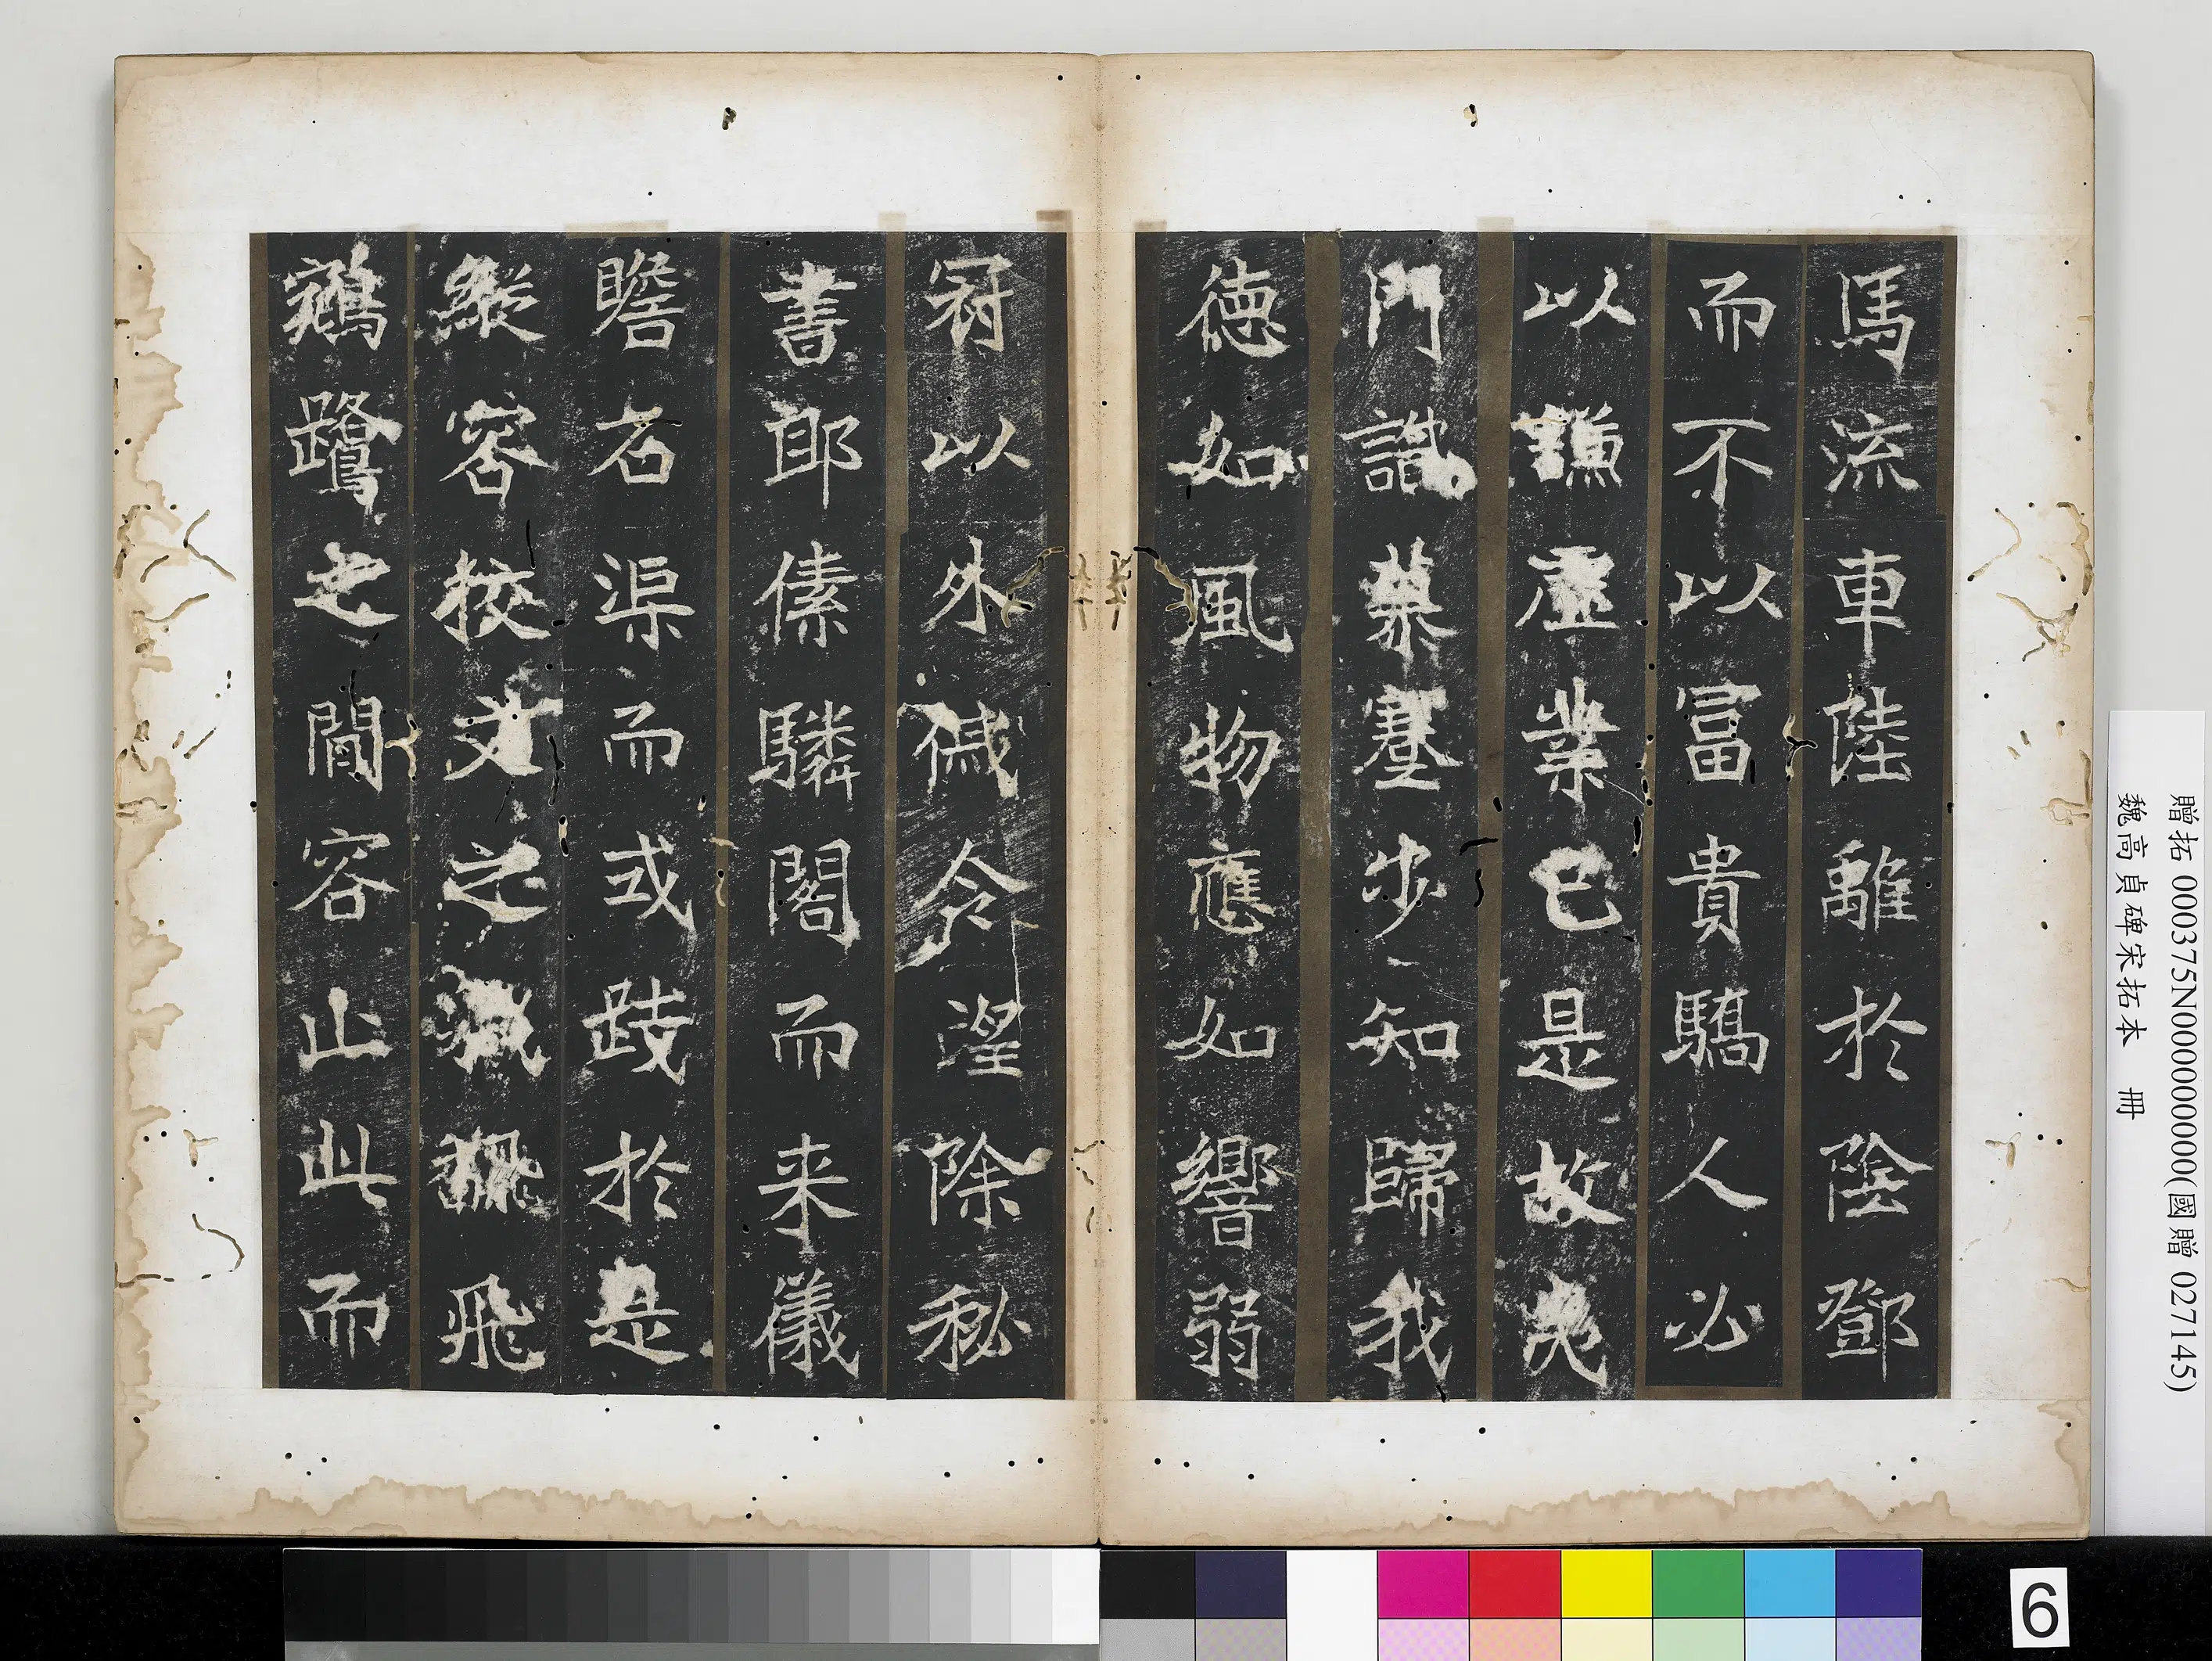 馬流車陸離於陰鄧
而不以冨貴驕人必
以謙虛業已是故
門讃慕蹇步知歸我
德如風物應如響弱
冠以外戚令望除秘
書郎傃驎閣而来儀
瞻石渠而或跂於是
縱容挍文之職翻飛
鵷鷺之間容止此而
贈拓 000375N000000000(國贈 027145)
魏高貞碑宋拓本 冊
6